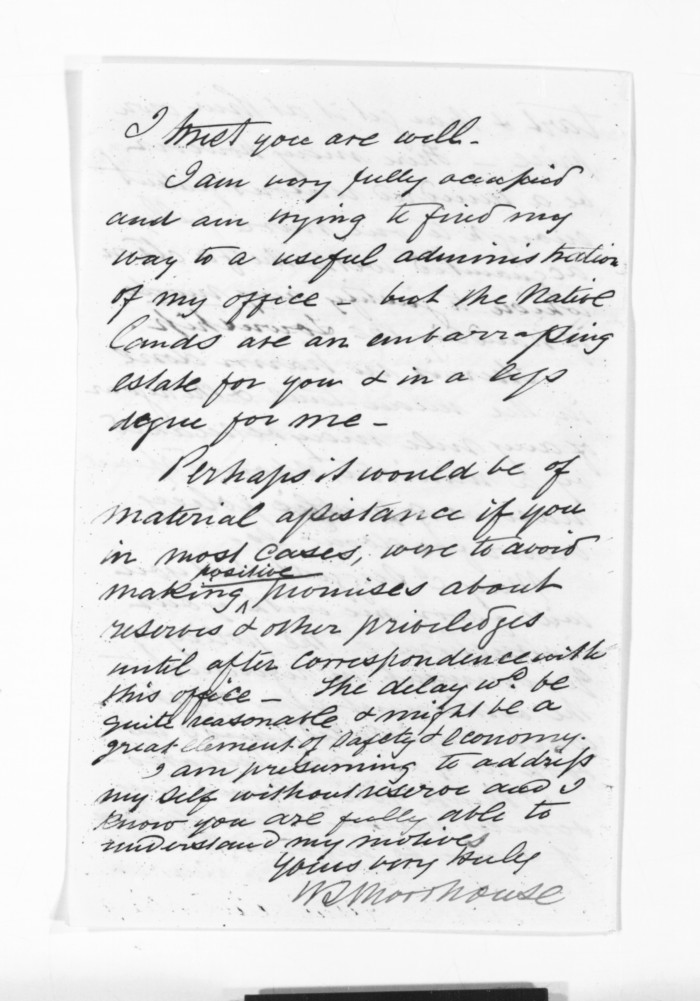 I trust you are well.
I am very fully occupied
and am trying to find my
way to a useful administration
of my office - but the Native
Lands are an embarrassing
estate for you & in a less
degree for me -
Perhaps it would be of
material assistance if you
in most cases, were to avoid
positive
making promises about
reserves & other priviledges
until after correspondence with
this office - The delay wd. be
quite reasonable & might be a
great element of safety & economy.
I am presuming to address
my self without reserve and I
know you are fully able to
understand my motives
Yours very truly
W S Moorhouse